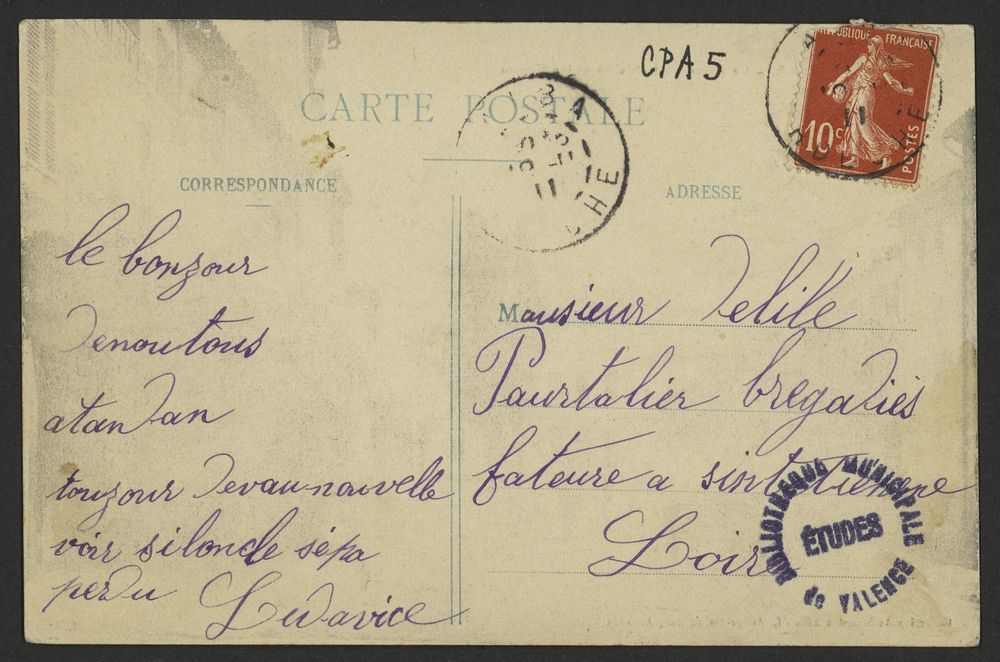 CPA 5
CARTE POSTALE
RÉPUBLIQUE FRANÇAISE
10c
POSTES
CORRESPONDANCE
ADRESSE
le bonzour
denoutous
atandan
touzour devau nouvelle
voir siloncle sépa
perdu Ludavice
Monsieur Delile
Pourtalier bregadiés
fateure a sintetienene
Loire
BIBLIOTHEQUE MUNICIPALE
ÉTUDES
de VALENCE